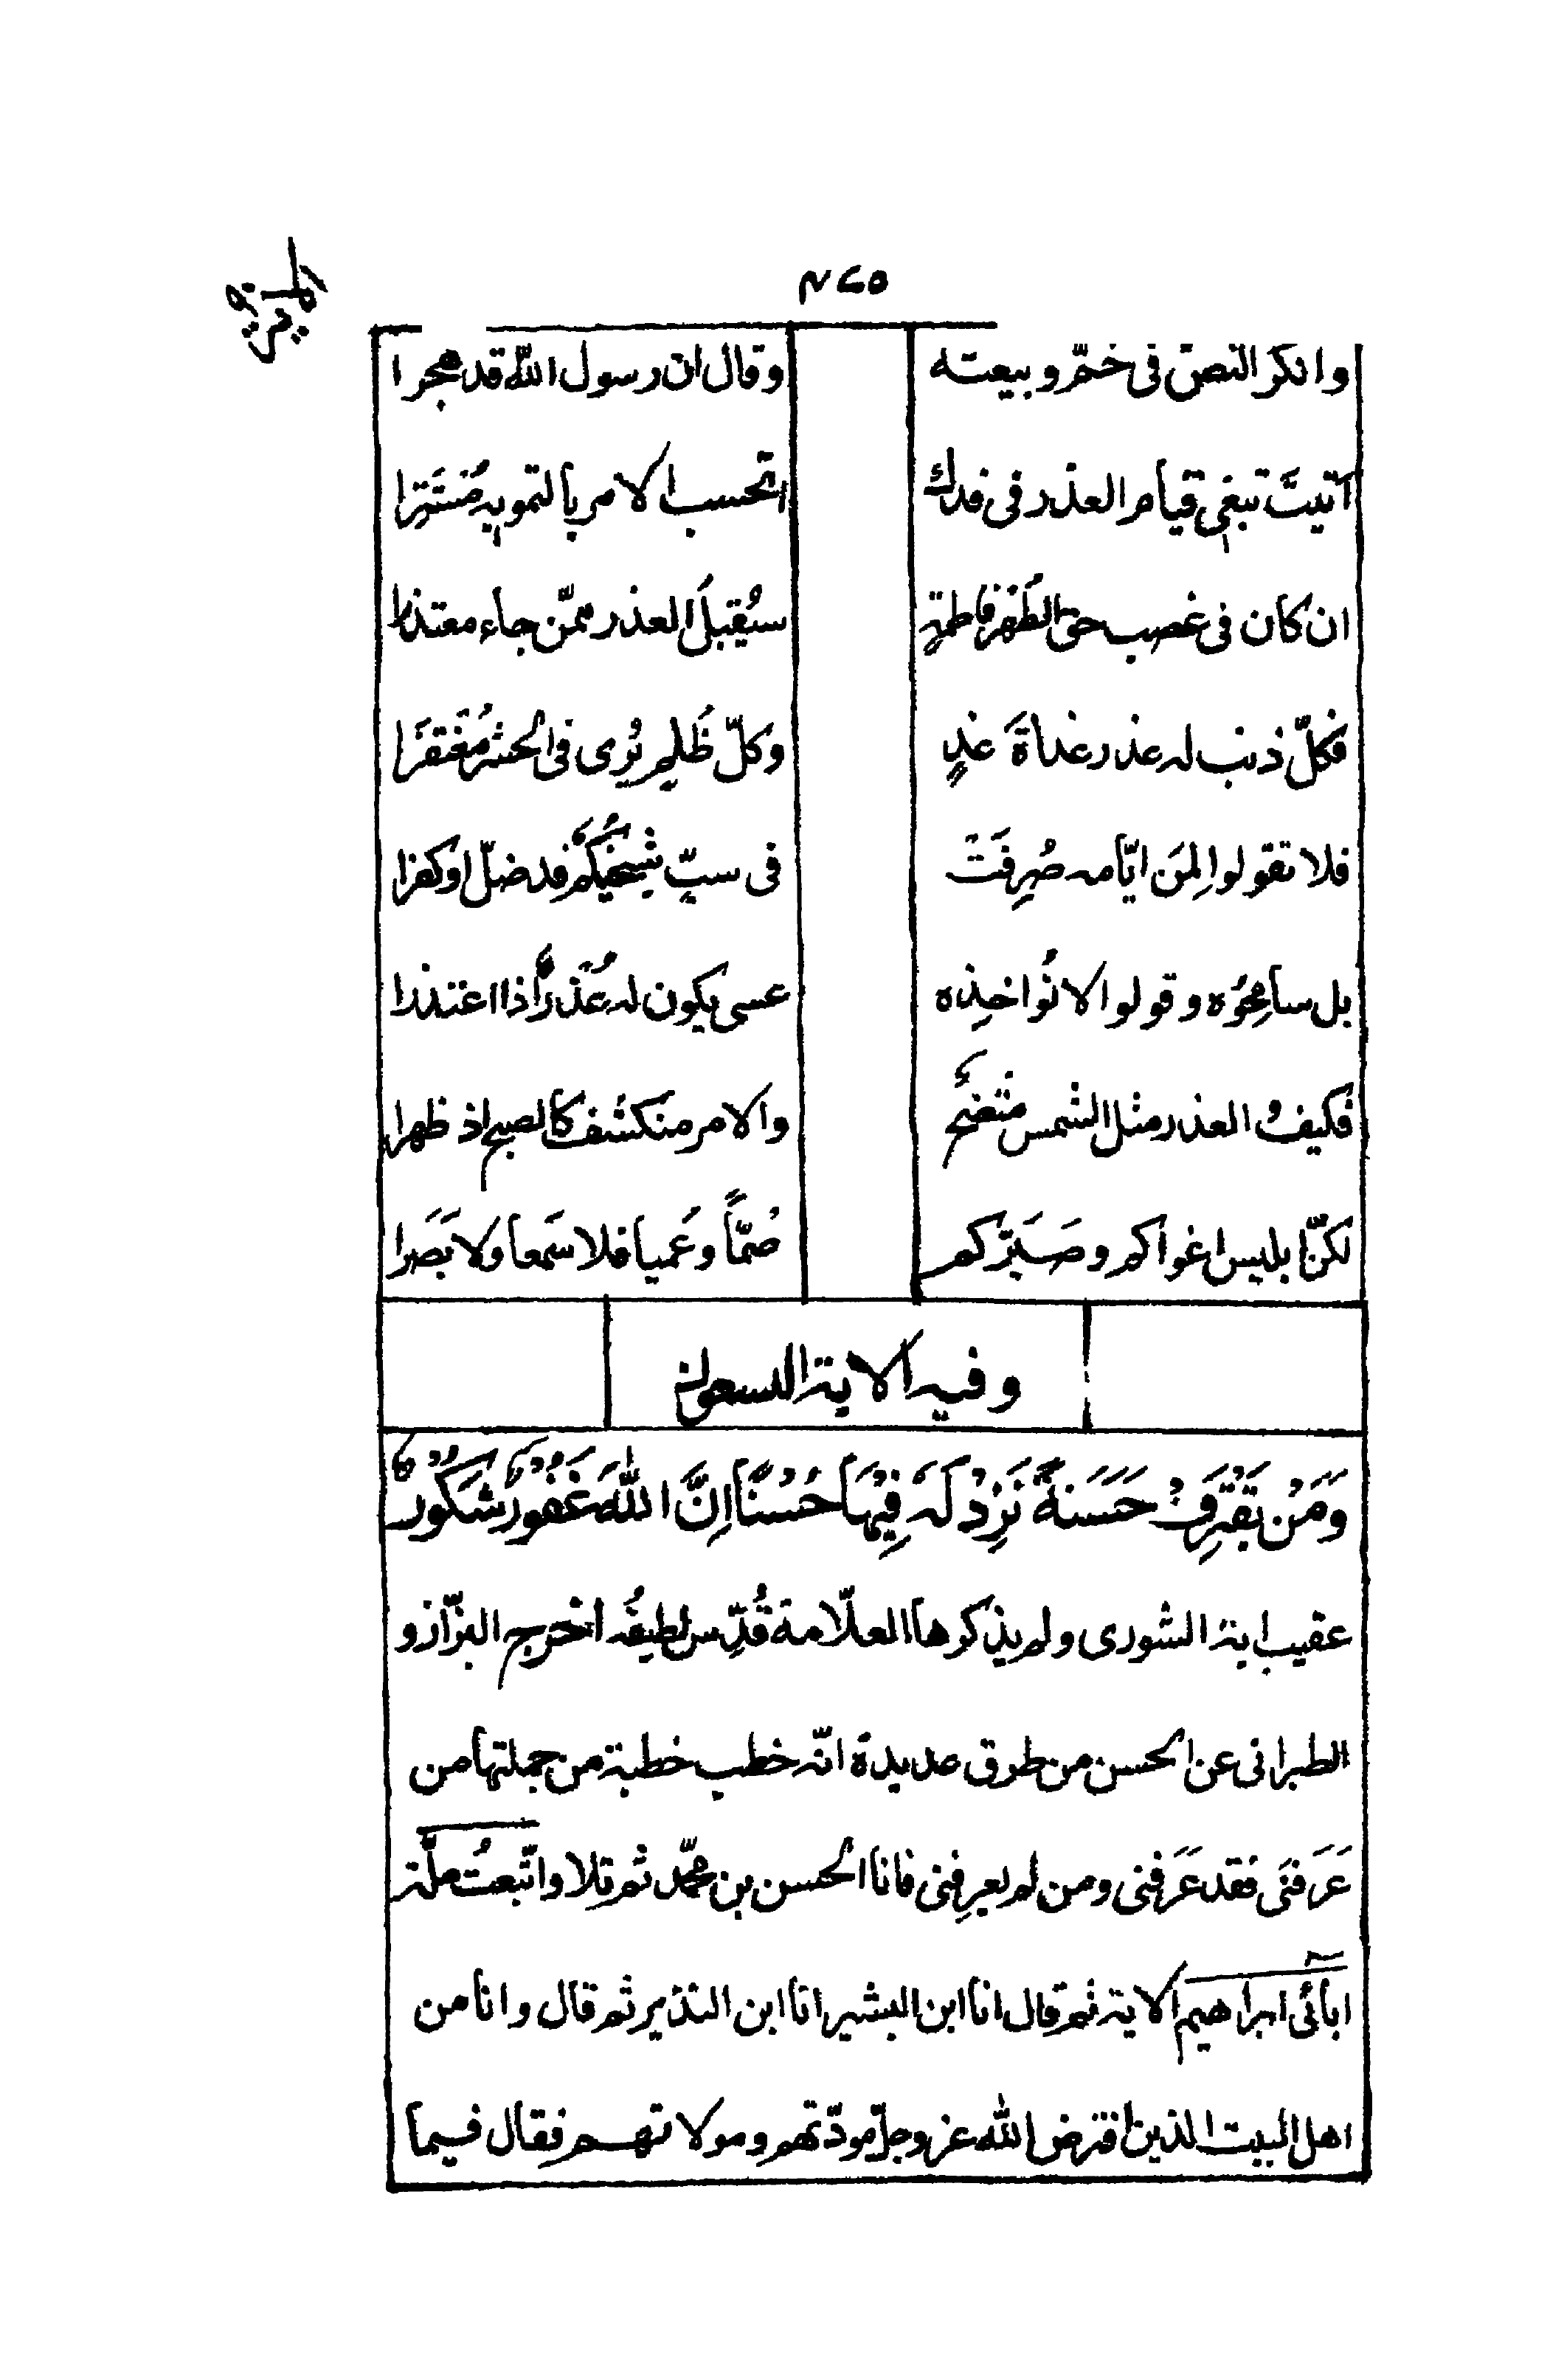 ٤٢٥
وانكر النصّ فى خمّ وبيعته وقال ان رسول اللّه قد هجرا
اتيتَ تبغى قيام العذر فى فدك اتحسب الامر بالتمويه مُستَتِرا
ان كان فى غصب حقّ الطُهْر فاطمةٍ سيُقبلُ العذر ممّن جاء معتذرا
فكلّ ذنب له عذر غداةَ غدٍ وكلّ ظُلم يُرى فى الحشر مُغتفَرا
فلا تقولوا لِمَن ايّامه صُرِفَتْ فى سبّ شيخيكُم قد ضلّ او كفرا
بل سامِحُوْه وقولوا لا نُواخِذه عسى يكون له عُذرٌ اذا اعتذرا
فكيفَ والعذر مثل الشمس متّضحٌ والامر منكشف كالصبح اذ ظهرا
لكنّ ابليس اغواكم وصَيّركم صُمّاً وعَميا فلا سَمعا ولا بَصَرا
وفيه الاية التسعون
وَمَنْ يَقْتَرِفْ حَسَنَةً نَزِدْ لَهٗ فِيْهَا حُسْنًا اِنَّ اللّٰهَ غَفُوْرٌ شَكُوْرٌ
عقيب اية الشورى ولم يذكرها العلّامة قُدِّس لطيفُه اخرج البزّاز و
الطبرانى عن الحسن من طرق عديدة انّه خطب خطبة من جملتها من
عَرَفنَى فقد عَرَفنى ومن لم يعرِفنى فانا الحسن بن محمّد ثم تلا واتّبعتُ ملّة
ابآئى ابراهيم الاية ثم قال انا ابن البشير انا ابن النذير ثم قال وانا من
اهل البيت الذين افترض اللّه عز وجلّ مودّتهم ومولاتهم فقال فيما